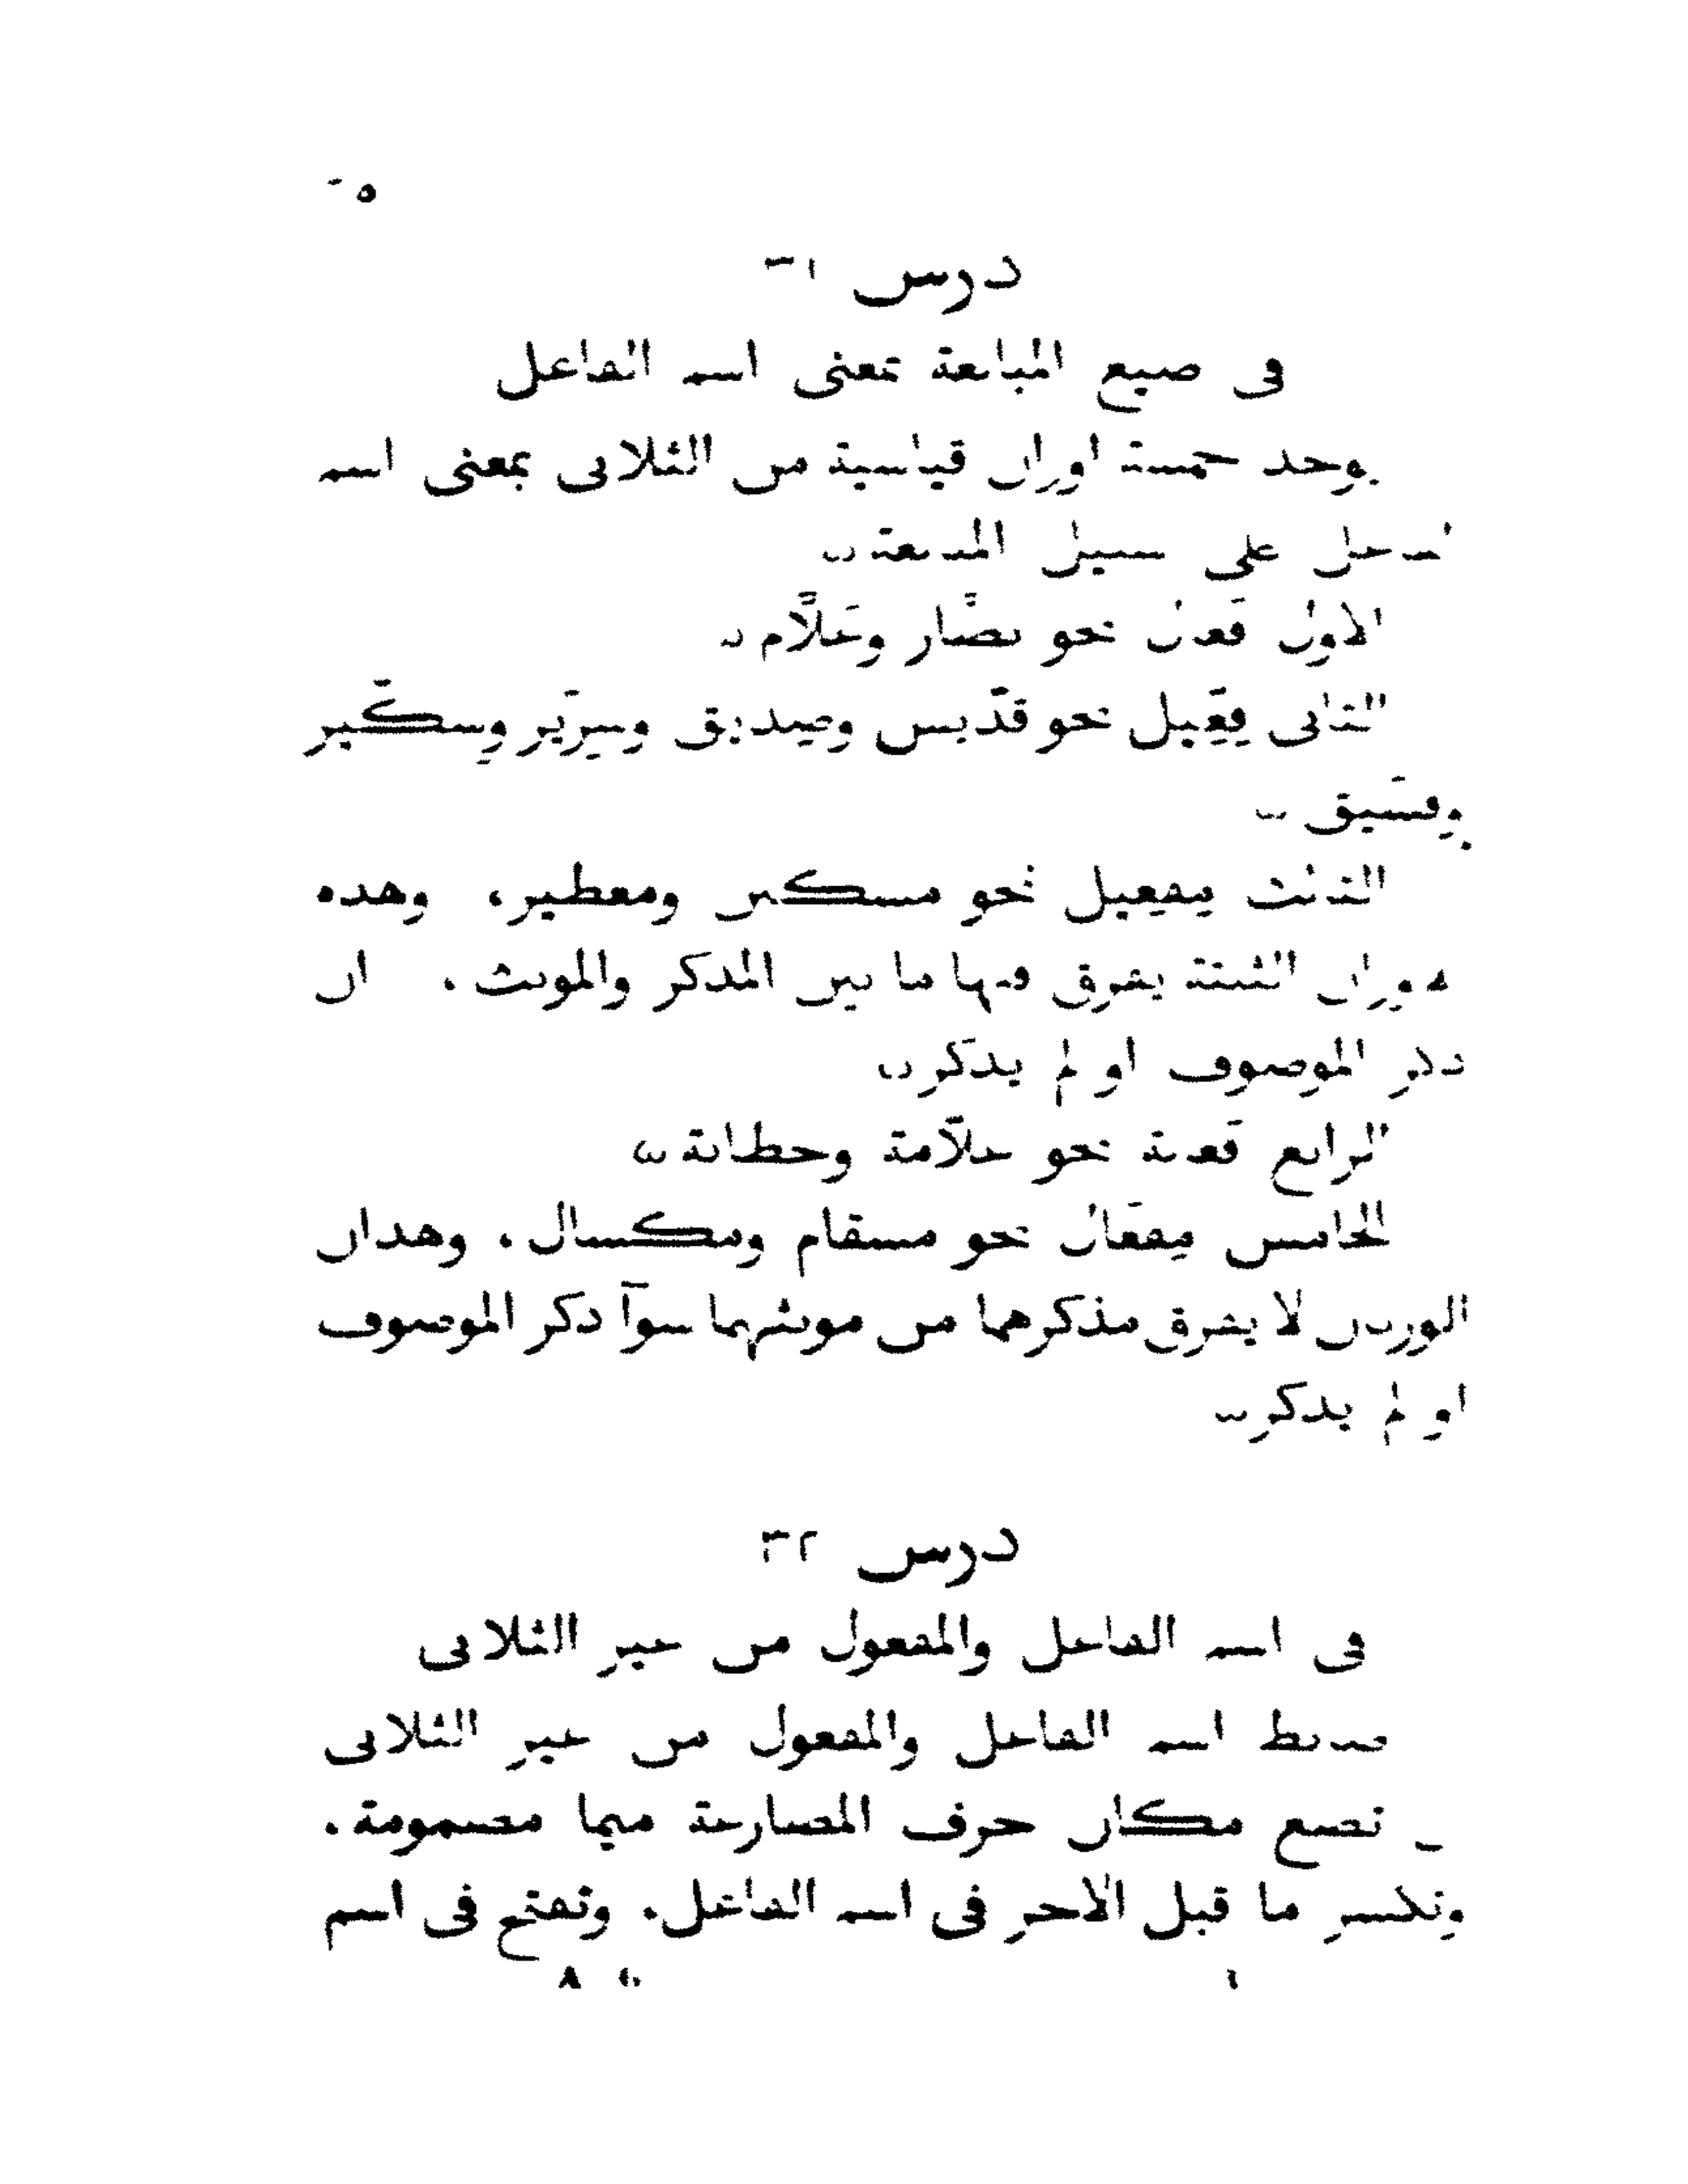 درس ٣١
فى صيغ المبالغة بمعنى اسم الفاعل
يوجد خمسة اوزان قياسية من الثلاثى بمعنى اسم
الفاعل على سبيل المبالغة
الاول فَعّال نحو نصَّار وعَلاَّم
الثانى فِعِّيل نحو قدّيس وصِدّيق وشِرّير وسِكّير
وفِسّيق
الثالث مِفعِيل نحو مسكين ومعطير، وهذه
الاوزان الثلثة يفرق فيها ما بين المذكر والمونث، ان
ذكر الموصوف او لم يذكر
الرابع فَعّالة نحو علاّمة وحطابة
الخامس مِفعَال نحو مسقام ومكسال، وهذان
الوزنان لا يفرق مذكرهما من مونثهما سوآ ذكر الموصوف
او لم يذكر
درس ٣٢
فى اسم الفاعل والمفعول من غير الثلاثى
ضابط اسم الفاعل والمفعول من غير الثلاثى
تضع مكان حرف المضارعة ميما مضمومة،
وتكسر ما قبل الاخر فى اسم الفاعل، وتفتح فى اسم